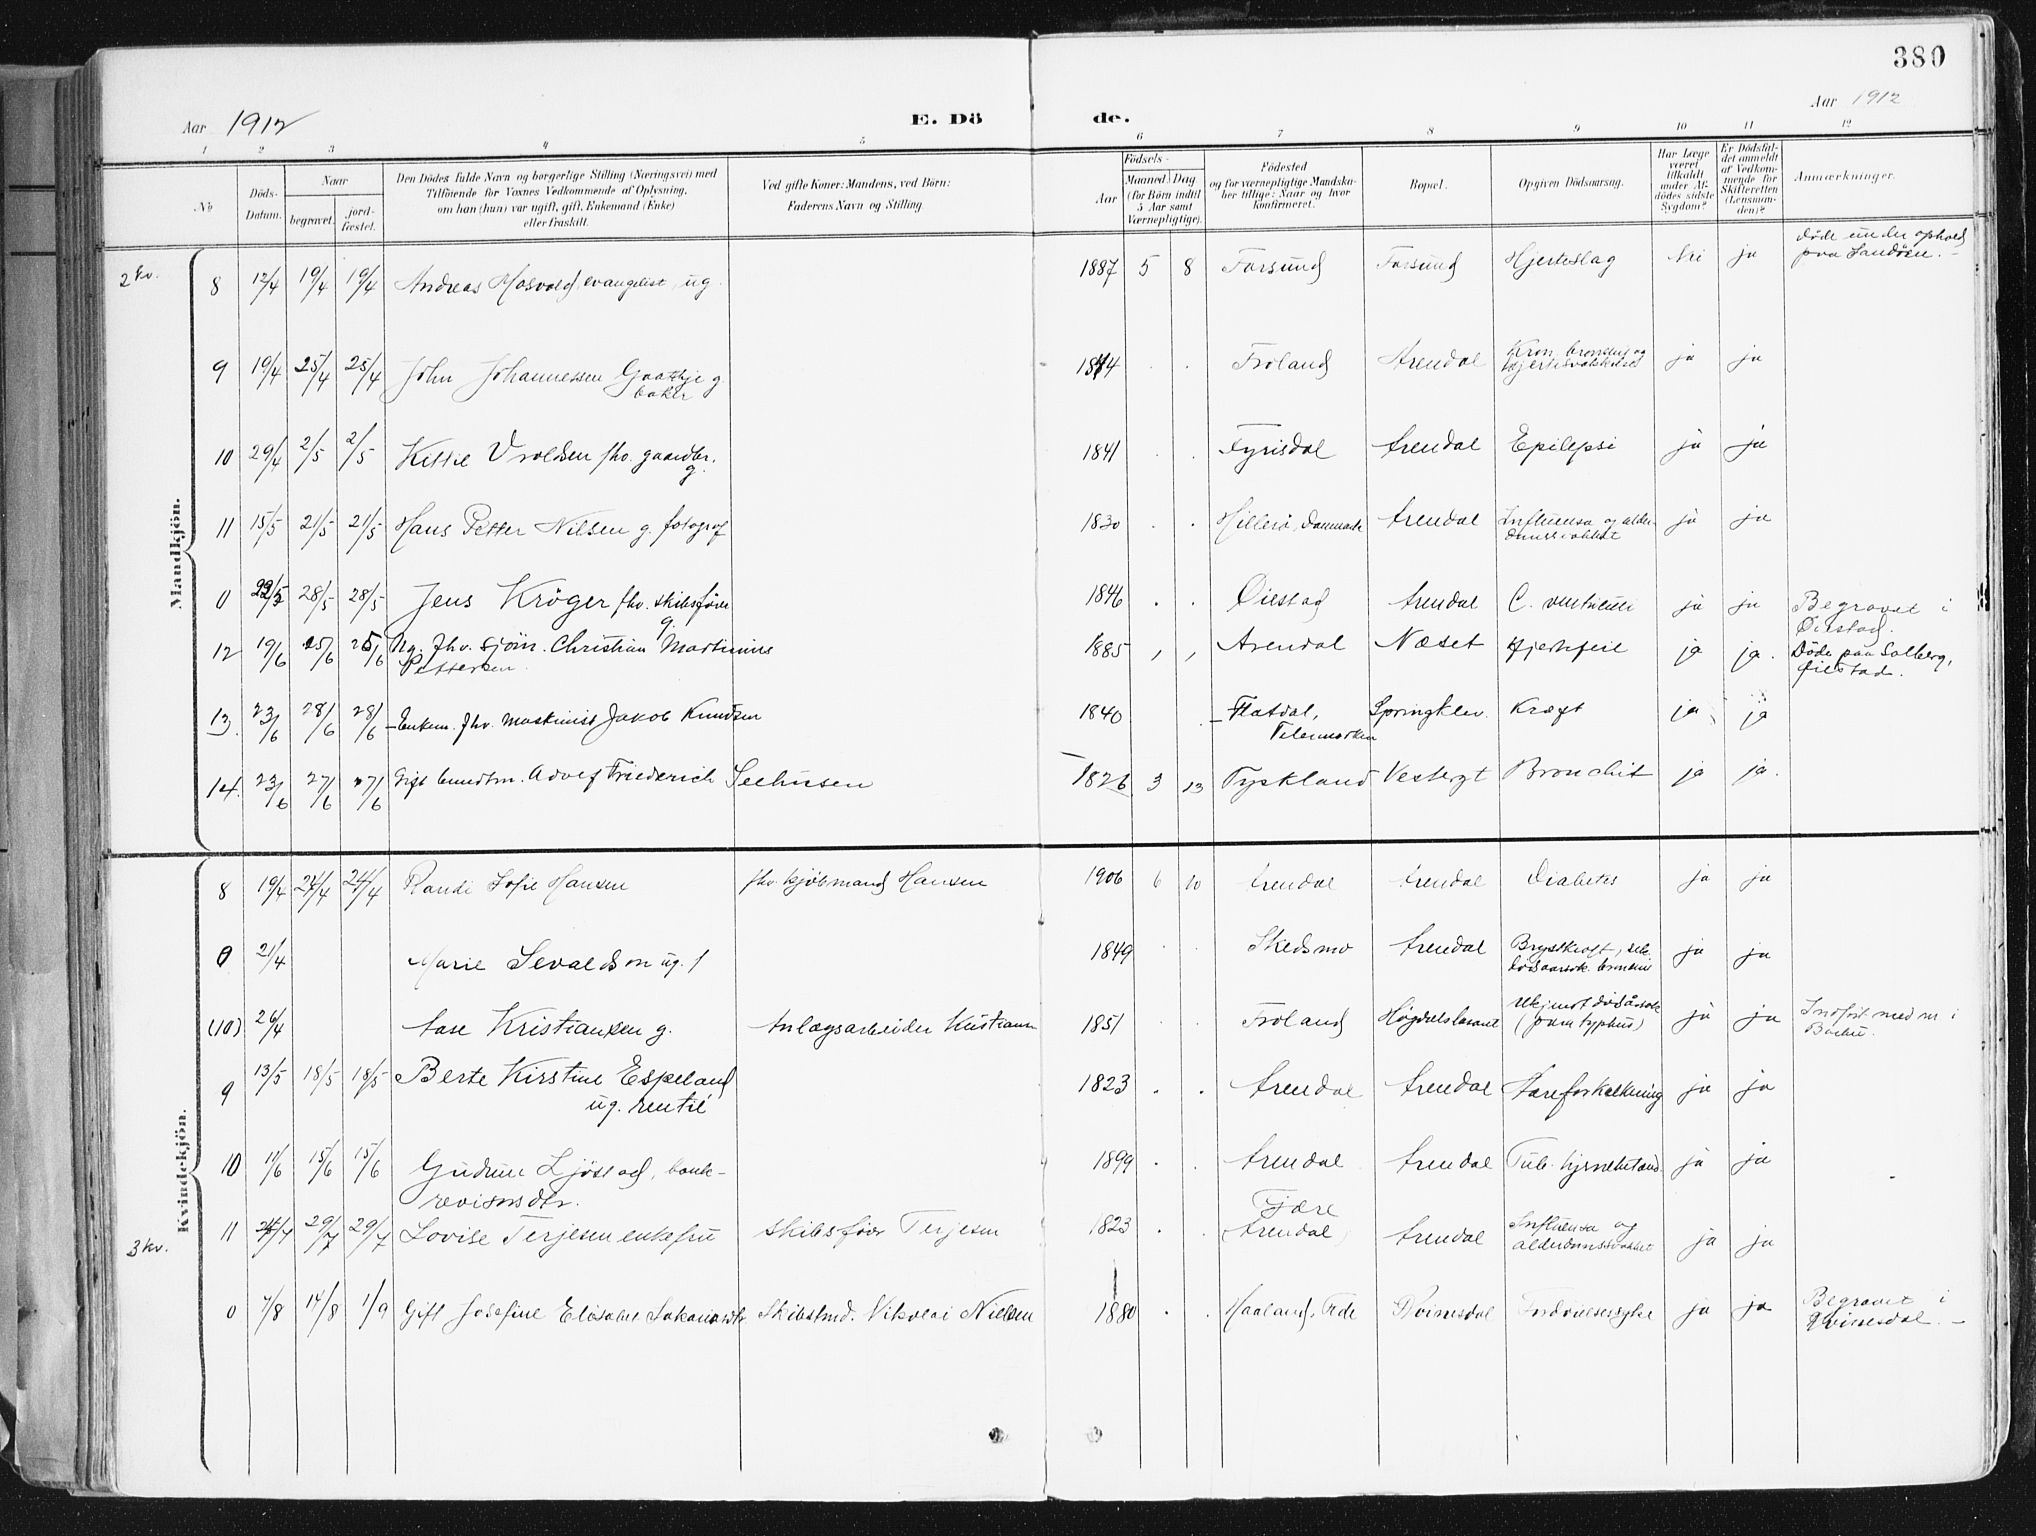 380
Aar 1912
E. Dö
de.
Aar 1912
1 2 3 4 5 6 7 8 9 10 11 12
No
Döds-
Datum.
Naar
begravet.
jord-
fæstet.
Den Dödes fulde Navn og borgerlige Stilling (Næringsvei) med
Tilföiende for Voxnes Vedkommende af Oplysning,
om han (hun) var ugift, gift, Enkemand (Enke)
eller fraskilt.
Ved gifte Koner: Mandens, ved Börn:
Faderens Navn og Stilling
Födsels-
Aar
Maaned Dag
(for Börn indtil
5 Aar samt
Værnepligtige).
Födested
og for værnepligtige Mandska-
ber tillige: Naar og hvor
konfirmeret.
Bopæl.
Opgiven Dödsaarsag.
Har Læge
været
tilkaldt
under Af-
dödes sidste
Sygdom?
Er Dödsfal-
det anmeldt
af Vedkom-
mende for
Skifteretten
(Lensman-
den)?
Anmærkninger.
2 kv.
Mandkjön.
8 12/4 19/4 19/4 Andreas Mosvold, evangelist, ug. 1887 5 8 Farsund Farsund Hjerteslag Nei ja Döde under ophold
paa Sandöen.
9 19/4 25/4 25/4 John Johannessen g. 1844 Froland Arendal Kron. og ja ja
baker
10 29/4 2/5 2/5 Kittil Uroldsen fhv. gaardbr. 1841 Fyrisdal Arendal Epilepsi ja ja
g.
11 15/5 21/5 21/5 Hans Petter Nilsen g. fotograf 1830 Hilleröd, Danmark Arendal Influensa og alder- ja ja
0 28/5 28/5 Jens Kröger fhv. skibsförer 1846 Öiestad Arendal C. ventriculi ja ja Begravet i
g. Öiestad.
12 19/6 25/6 25/6 Ug. fhv. sjöm. Christian Martinius 1885 Arendal Næset Hjertefeil ja ja. Döde paa Solberg,
Pettersen Öiestad.
13. 23/6 28/6 28/6 Enkem. fhv. maskinist Jakob Knudsen 1840 Flatdal, Springklev. Kræft ja ja
Telemarken
14. 23/6 27/6 27/6 Gift bundtm. Adolf Friederich Seehusen 1826 3 13 Tyskland Vestergt Bronchit ja ja.
Kvindekjön.
8 19/4 24/4 24/4 Randi Sofie Hansen fhv. kjöbmand Hansen 1906 6 10 Arendal Arendal Diabetes ja ja
0 21/4 Marie Sevaldson ug. 1849 Skedsmo Arendal Brystkræft, ja ja
(10) 26/4 Aase Kristiansen g. Anlægsarbeider Kristiansen 1851 Froland ja ja Indfört med nr. i
9 13/5 18/5 18/5 Berte Kirstine Espeland 1823 Arendal Arendal Aareforkalkning ja ja
ug. rentiè
10 11/6 15/6 15/6 Gudrun Ljöstad, bank- 1899 Arendal Arendal Tub. ja ja
revisorsdtr.
3 kv.
Fjære
11 29/7 29/7 Lovise Terjesen enkefru Skibsförer Terjesen 1823 (Arendal) Arendal Influensa og ja ja
alderdomssvakhet
0 7/8 14/8 1/9 Gift Josefine Elisabet Skibstmd. Nikolai Nielsen 1880 Haaland, Kvinesdal Fordöielsessyke ja ja Begravet i
Kvinesdal.